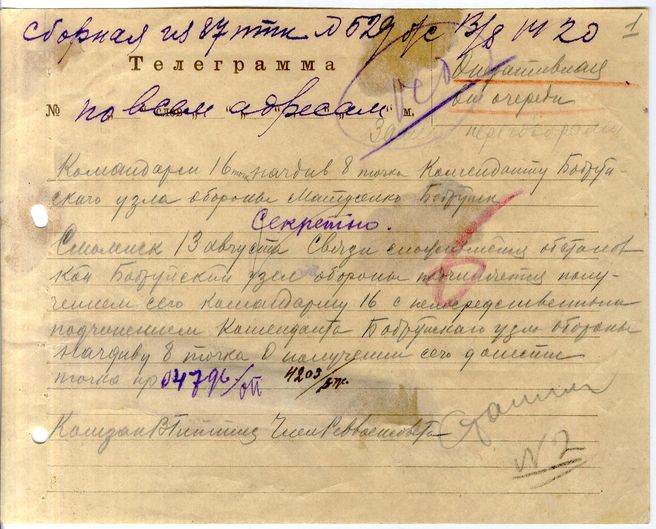 Сборная из 87 птк № 529 б/с 13/8 14 20
1
Телеграмма
Оперативная
вне очереди
№ по всем адресам м.
переговорами
Командарм 16 точка начдив 8 точка Коменданту Бобруй-
скаго узла обороны Матузенко Бобруйск
Секретно.
Смоленск 13 августа Связи обстанов
кой Бобруйский узел обороны подчиняется полу-
чением сего командарму 16 с непосредственным
подчинением Коменданта Бобруйскаго узла обороны
начдиву 8 точка О получении сего донести
точка нр 04796/оп 4203/
Комзап Член Реввоенсовета
№ 2